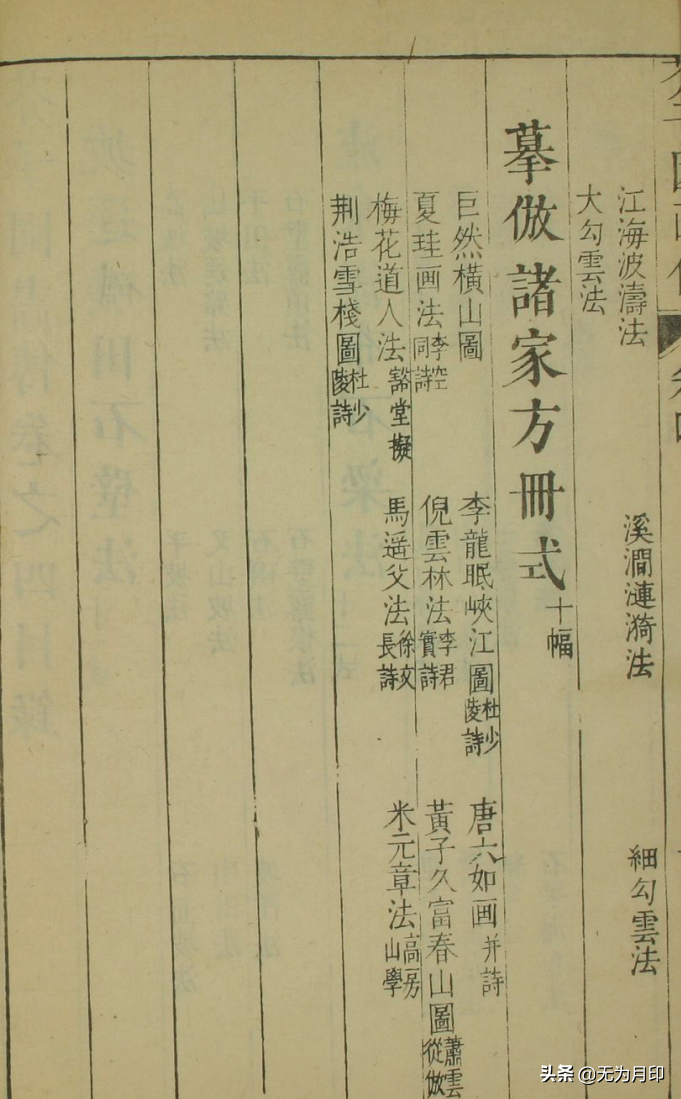 江海波濤法 溪澗漣漪法 細勾雲法
大勾雲法
摹倣諸家方冊式十幅
巨然橫山圖 李龍眠峽江圖杜少陵詩 唐六如画并詩
夏珪画法李空同詩 倪雲林法李君實詩 黃子久富春山圖蕭雲從倣
梅花道人法豁堂擬 馬遥父法徐文長詩 米元章法高房山學
荆浩雪棧圖杜少陵詩
头条 @无为月印